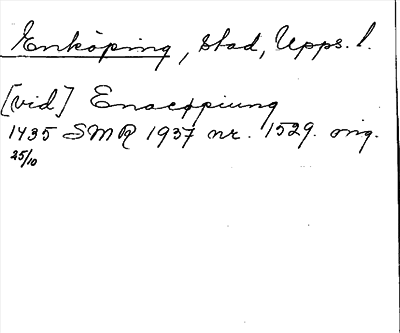 Enköping, stad, Upps. l.
[vid] Enacopiung
1435 SMR 1937 nr. 1529. orig.
25/10